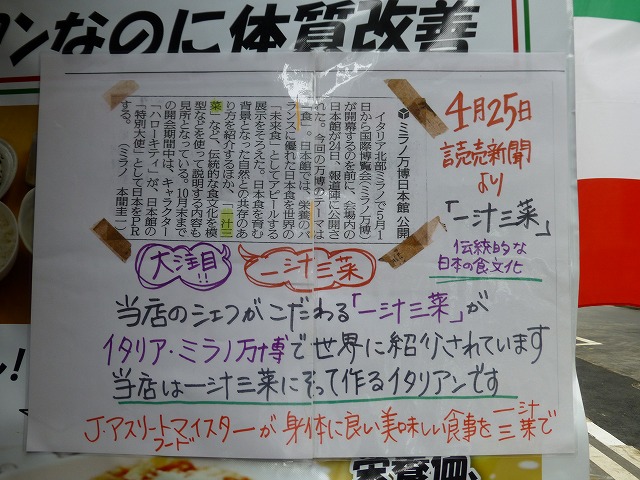 タンなのに体質改善
ミラノ万博日本館公開
イタリア北部ミラノで5月1
日から国際博覧会(ミラノ万博)
が開幕するのを前に、会場内の
日本館が24日、報道陣に公開さ
れた。今回の万博のテーマは
「食」。日本館では、栄養のバ
ランスに優れた日本食を世界の
「未来食」としてアピールする
展示をそろえた。日本食を育む
背景となった自然との共存のあ
り方を紹介するほか、「一汁三
菜」など、伝統的な食文化を模
型などを使って説明する内容も
見所となっている。10月末まで
の開会期間中は、キャラクター
「ハローキティ」が、日本館の
「特別大使」として日本をPR
する。(ミラノ 本間圭一)
4月25日
読売新聞
より
「一汁三菜」
伝統的な
日本の食文化
大注目!!
一汁三菜
当店のシェフがこだわる「一汁三菜」が
イタリア・ミラノ万博で世界に紹介されています
当店は一汁三菜にそって作るイタリアンです
J・アスリートフードマイスターが身体に良い美味しい食事を一汁三菜で
栄養価